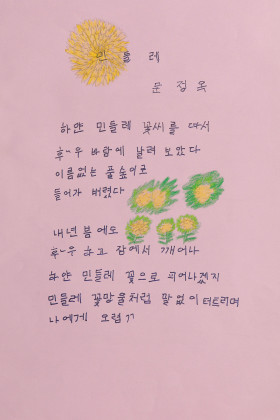 민들레
문정옥
하얀 민들레 꽃씨를 따서
후~우 바람에 날려 보았다
이름없는 풀숲으로
들어가 버렸다
내년 봄에도
후~우 하고 잠에서 깨어나
하얀 민들레 꽃으로 피어나겠지
민들레 꽃망울처럼 말없이 터트리며
나에게 오렴